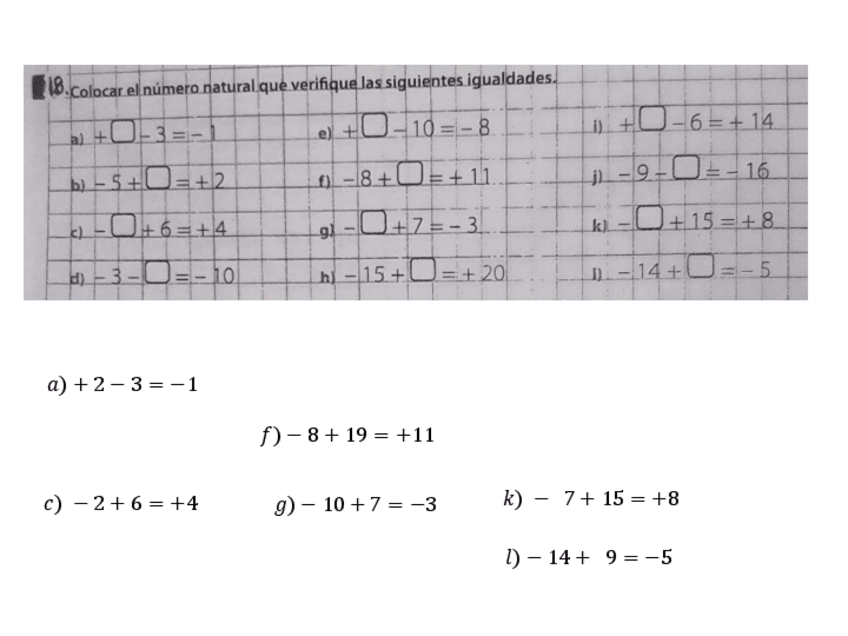 18. Colocar el número natural que verifique las siguientes igualdades.
a) +□ – 3 = – 1 e) +□ – 10 = – 8 i) +□ – 6 = + 14
b) – 5 + □ = + 2 f) – 8 + □ = + 11 j) – 9 – □ = – 16
c) – □ + 6 = + 4 g) – □ + 7 = – 3 k) – □ + 15 = + 8
d) – 3 – □ = – 10 h) – 15 + □ = + 20 l) – 14 + □ = – 5
a) + 2 – 3 = –1
f) – 8 + 19 = +11
c) – 2 + 6 = +4 g) – 10 + 7 = –3 k) – 7 + 15 = +8
l) – 14 + 9 = –5